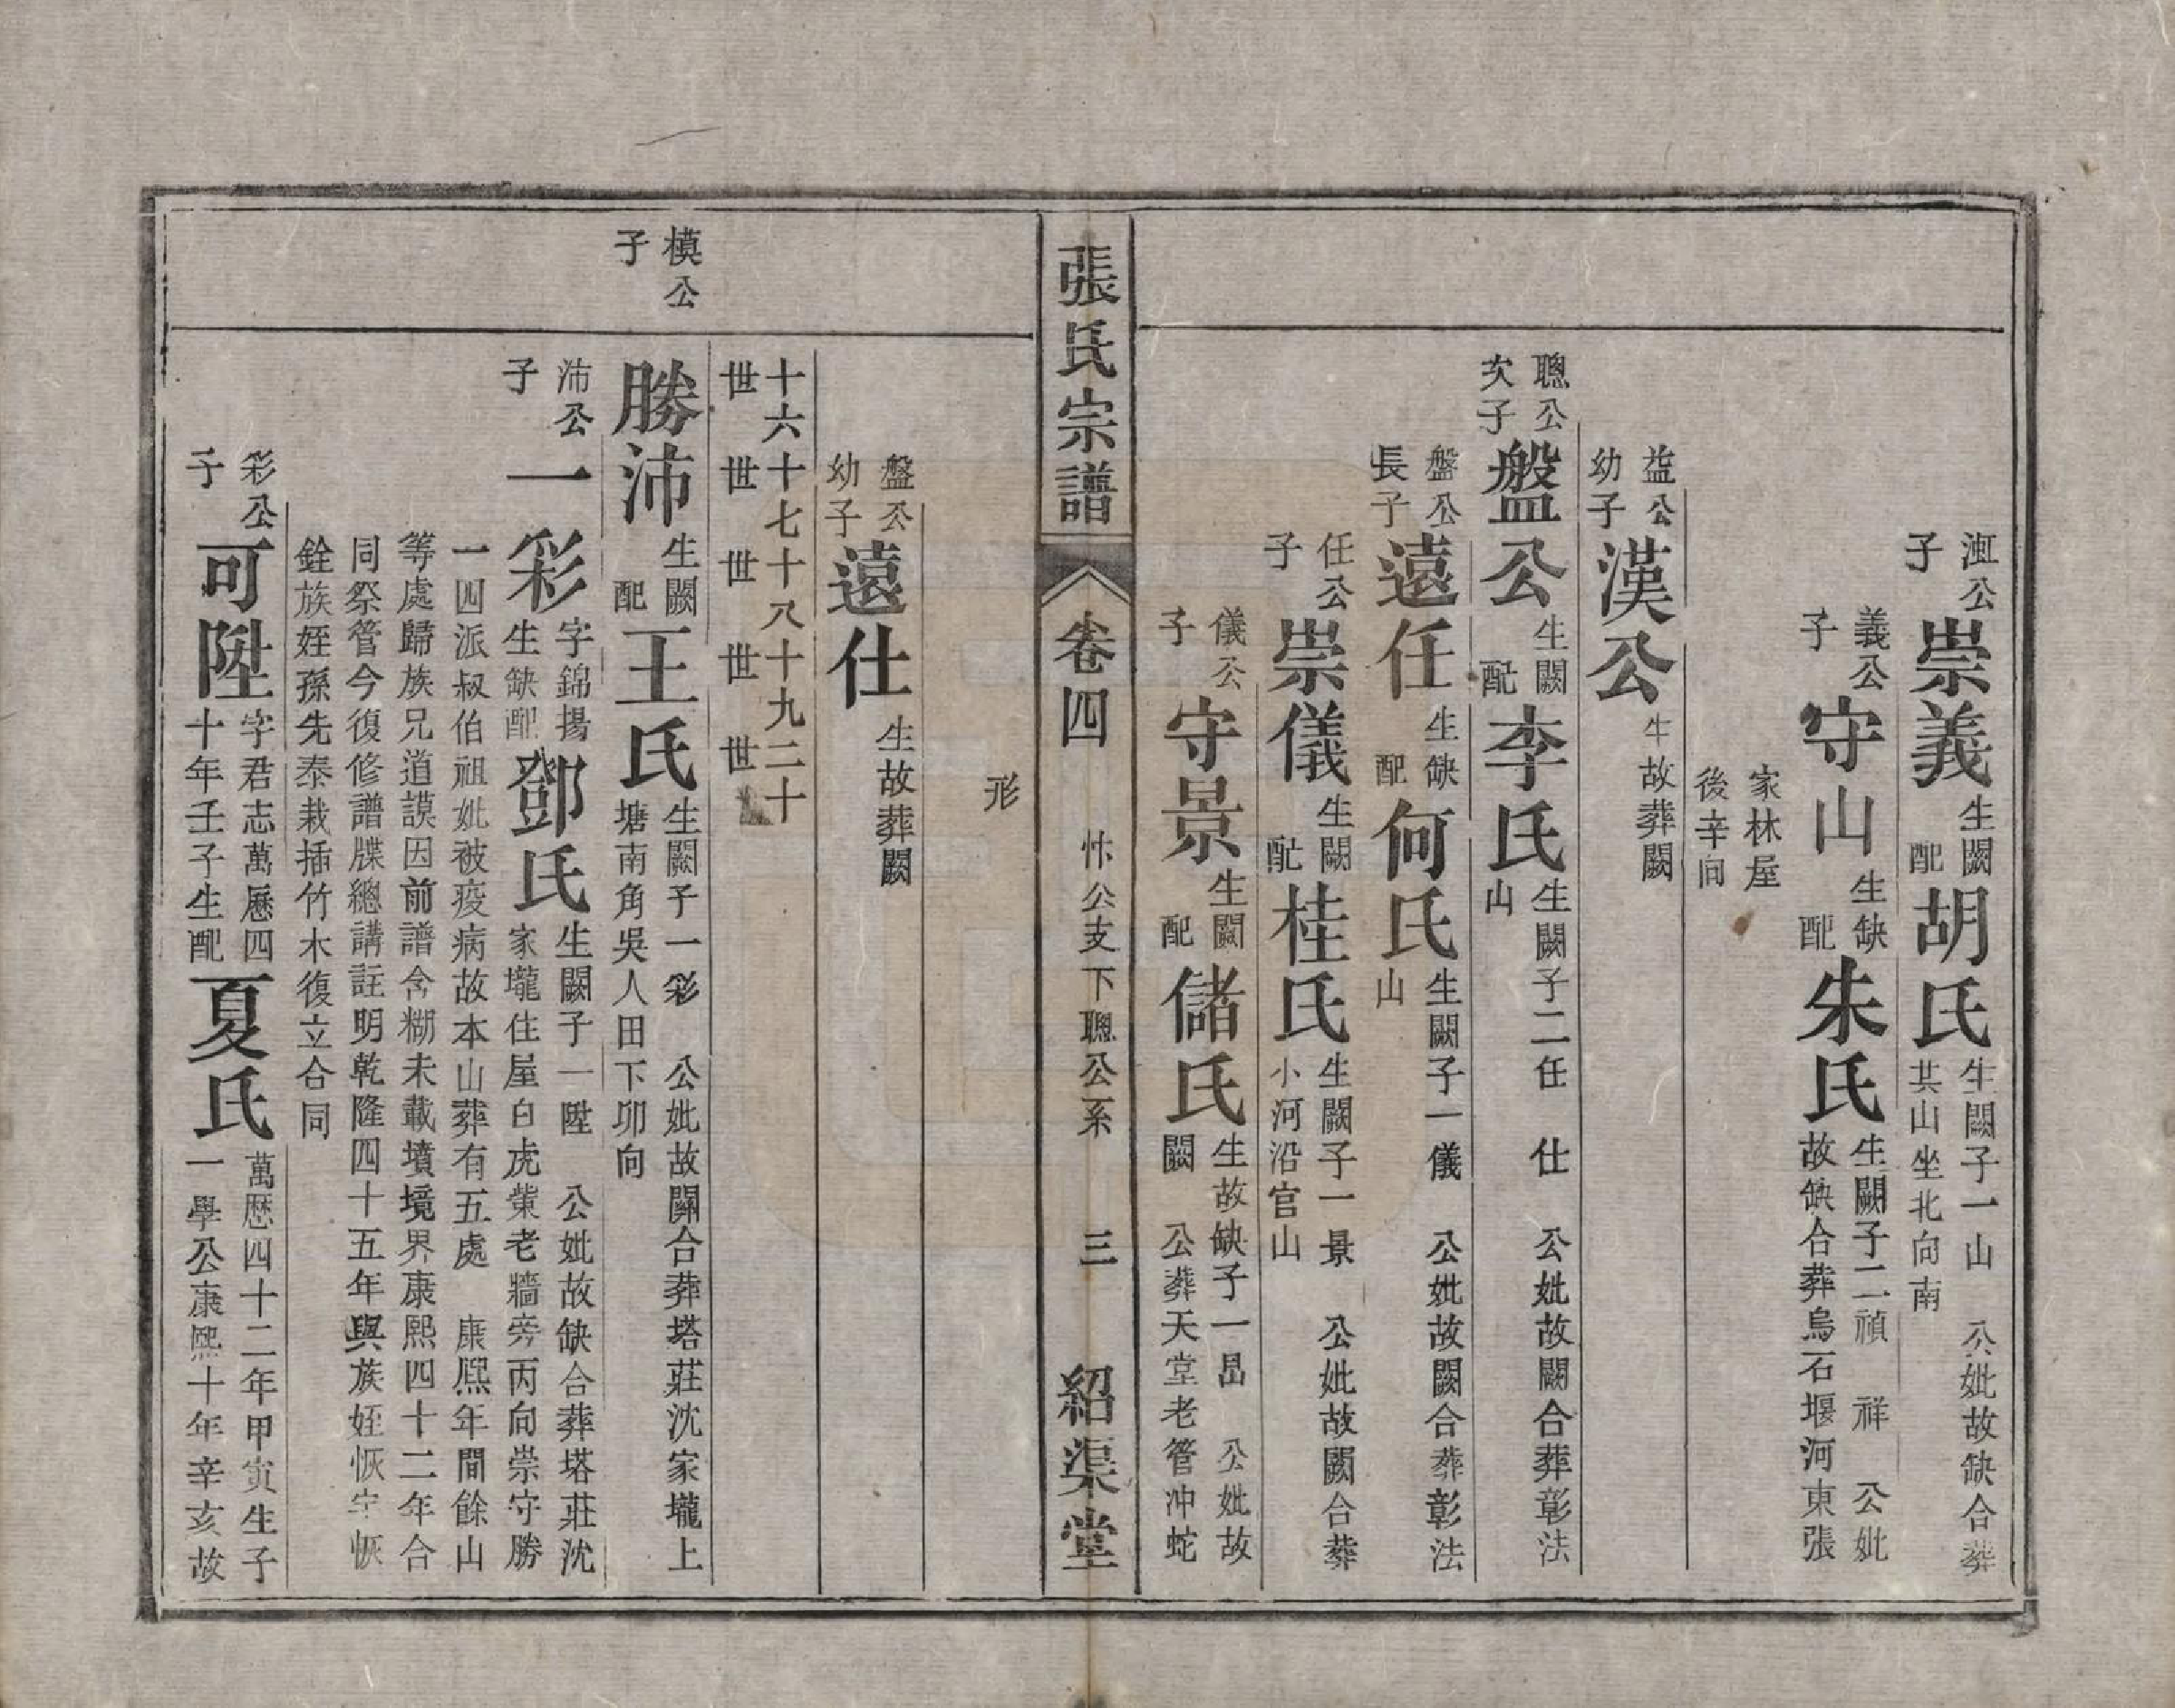 洭公子
崇義
生闕
配
胡氏
生闕子一山 公妣故缺合葬
其山坐北向南
義公子
守山
生缺
配
朱氏
生闕子二禎 祥 公妣
故缺合葬烏石堰河東張
家林屋
後辛向
益公幼子
漢公
生故葬闕
聰公次子
盤公
生闕
配
李氏
生闕子二任 仕 公妣故闕合葬彰法
山
盤公長子
遠任
生缺
配
何氏
生闕子一儀 公妣故闕合葬彰法
山
任公子
崇儀
生闕
配
桂氏
生闕子一景 公妣故闕合葬
小河沿官山
儀公子
守景
生闕
配
儲氏
生故缺子一昺 公妣故
闕 公葬天堂老管冲蛇
張氏宗譜
卷四
忭公支下聰公系
三
紹渠堂
形
盤公幼子
遠仕
生故葬闕
十六世
十七世
十八世
十九世
二十世
模公子
勝沛
生闕
配
王氏
生闕子一彩 公妣故闕合葬塔莊沈家壠上
塘南角吳人田下卯向
沛公子
一彩
字錦揚
生缺配
鄧氏
生闕子一陞 公妣故缺合葬塔莊沈
家壠住屋白虎葉老牆旁丙向崇守勝
一四派叔伯祖妣被疫病故本山葬有五處 康熙年間餘山
等處歸族兄道謨因前譜含糊未載墳境界康熙四十二年合
同祭管今復修譜牒總講註明乾隆四十五年與族姪恢宇恢
銓族姪孫先泰栽插竹木復立合同
彩公子
可陞
字君志萬曆四
十年壬子生配
夏氏
萬歷四十二年甲寅生子
一學公康熙十年辛亥故